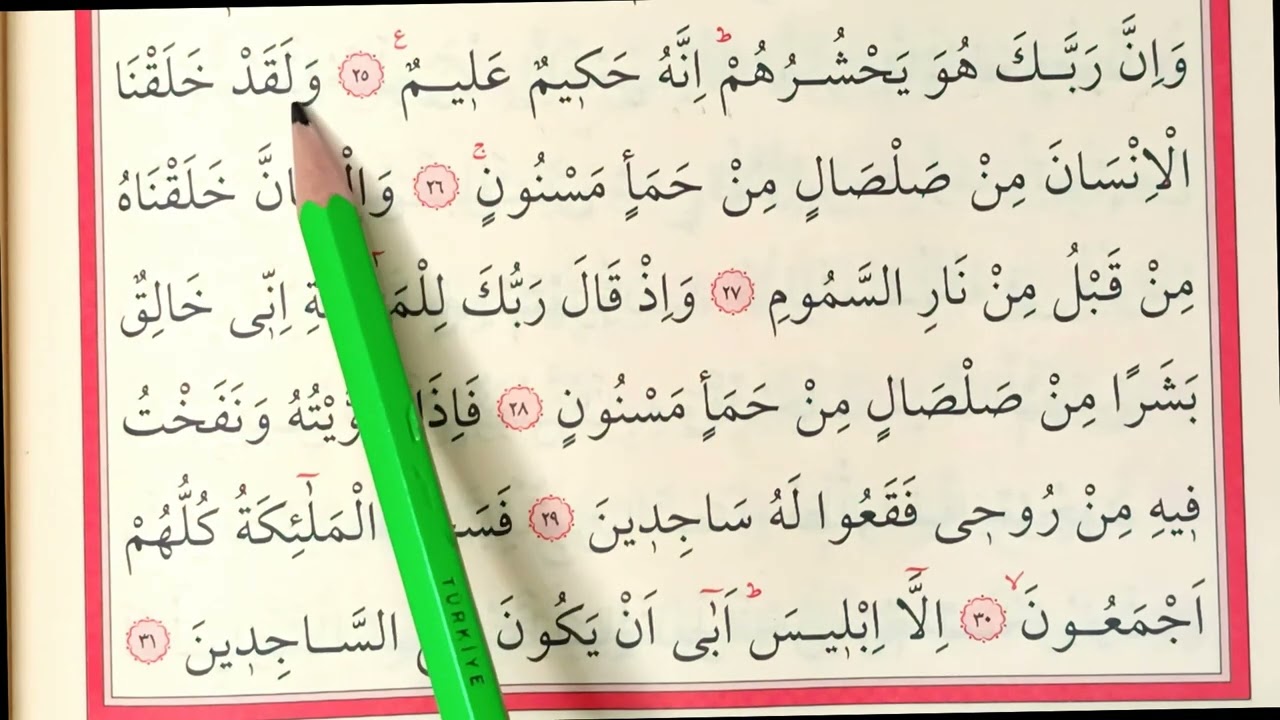 وَاِنَّ رَبَّكَ هُوَ يَحْشُرُهُمْۜ اِنَّهُ حَكٖيمٌ عَلٖيمٌ ﴿٢٥﴾ وَلَقَدْ خَلَقْنَا
الْاِنْسَانَ مِنْ صَلْصَالٍ مِنْ حَمَأٍ مَسْنُونٍۚ ﴿٢٦﴾ خَلَقْنَاهُ
مِنْ قَبْلُ مِنْ نَارِ السَّمُومِ ﴿٢٧﴾ وَاِذْ قَالَ رَبُّكَ اِنّٖى خَالِقٌ
بَشَرًا مِنْ صَلْصَالٍ مِنْ حَمَأٍ مَسْنُونٍ ﴿٢٨﴾ وَنَفَخْتُ
فٖيهِ مِنْ رُوحٖى فَقَعُوا لَهُ سَاجِدٖينَ ﴿٢٩﴾ الْمَلٰٓئِكَةُ كُلُّهُمْ
اَجْمَعُونَۙ ﴿٣٠﴾ اِلَّٓا اِبْلٖيسَۜ اَبٰٓى اَنْ يَكُونَ السَّاجِدٖينَ ﴿٣١﴾
TURKIYE